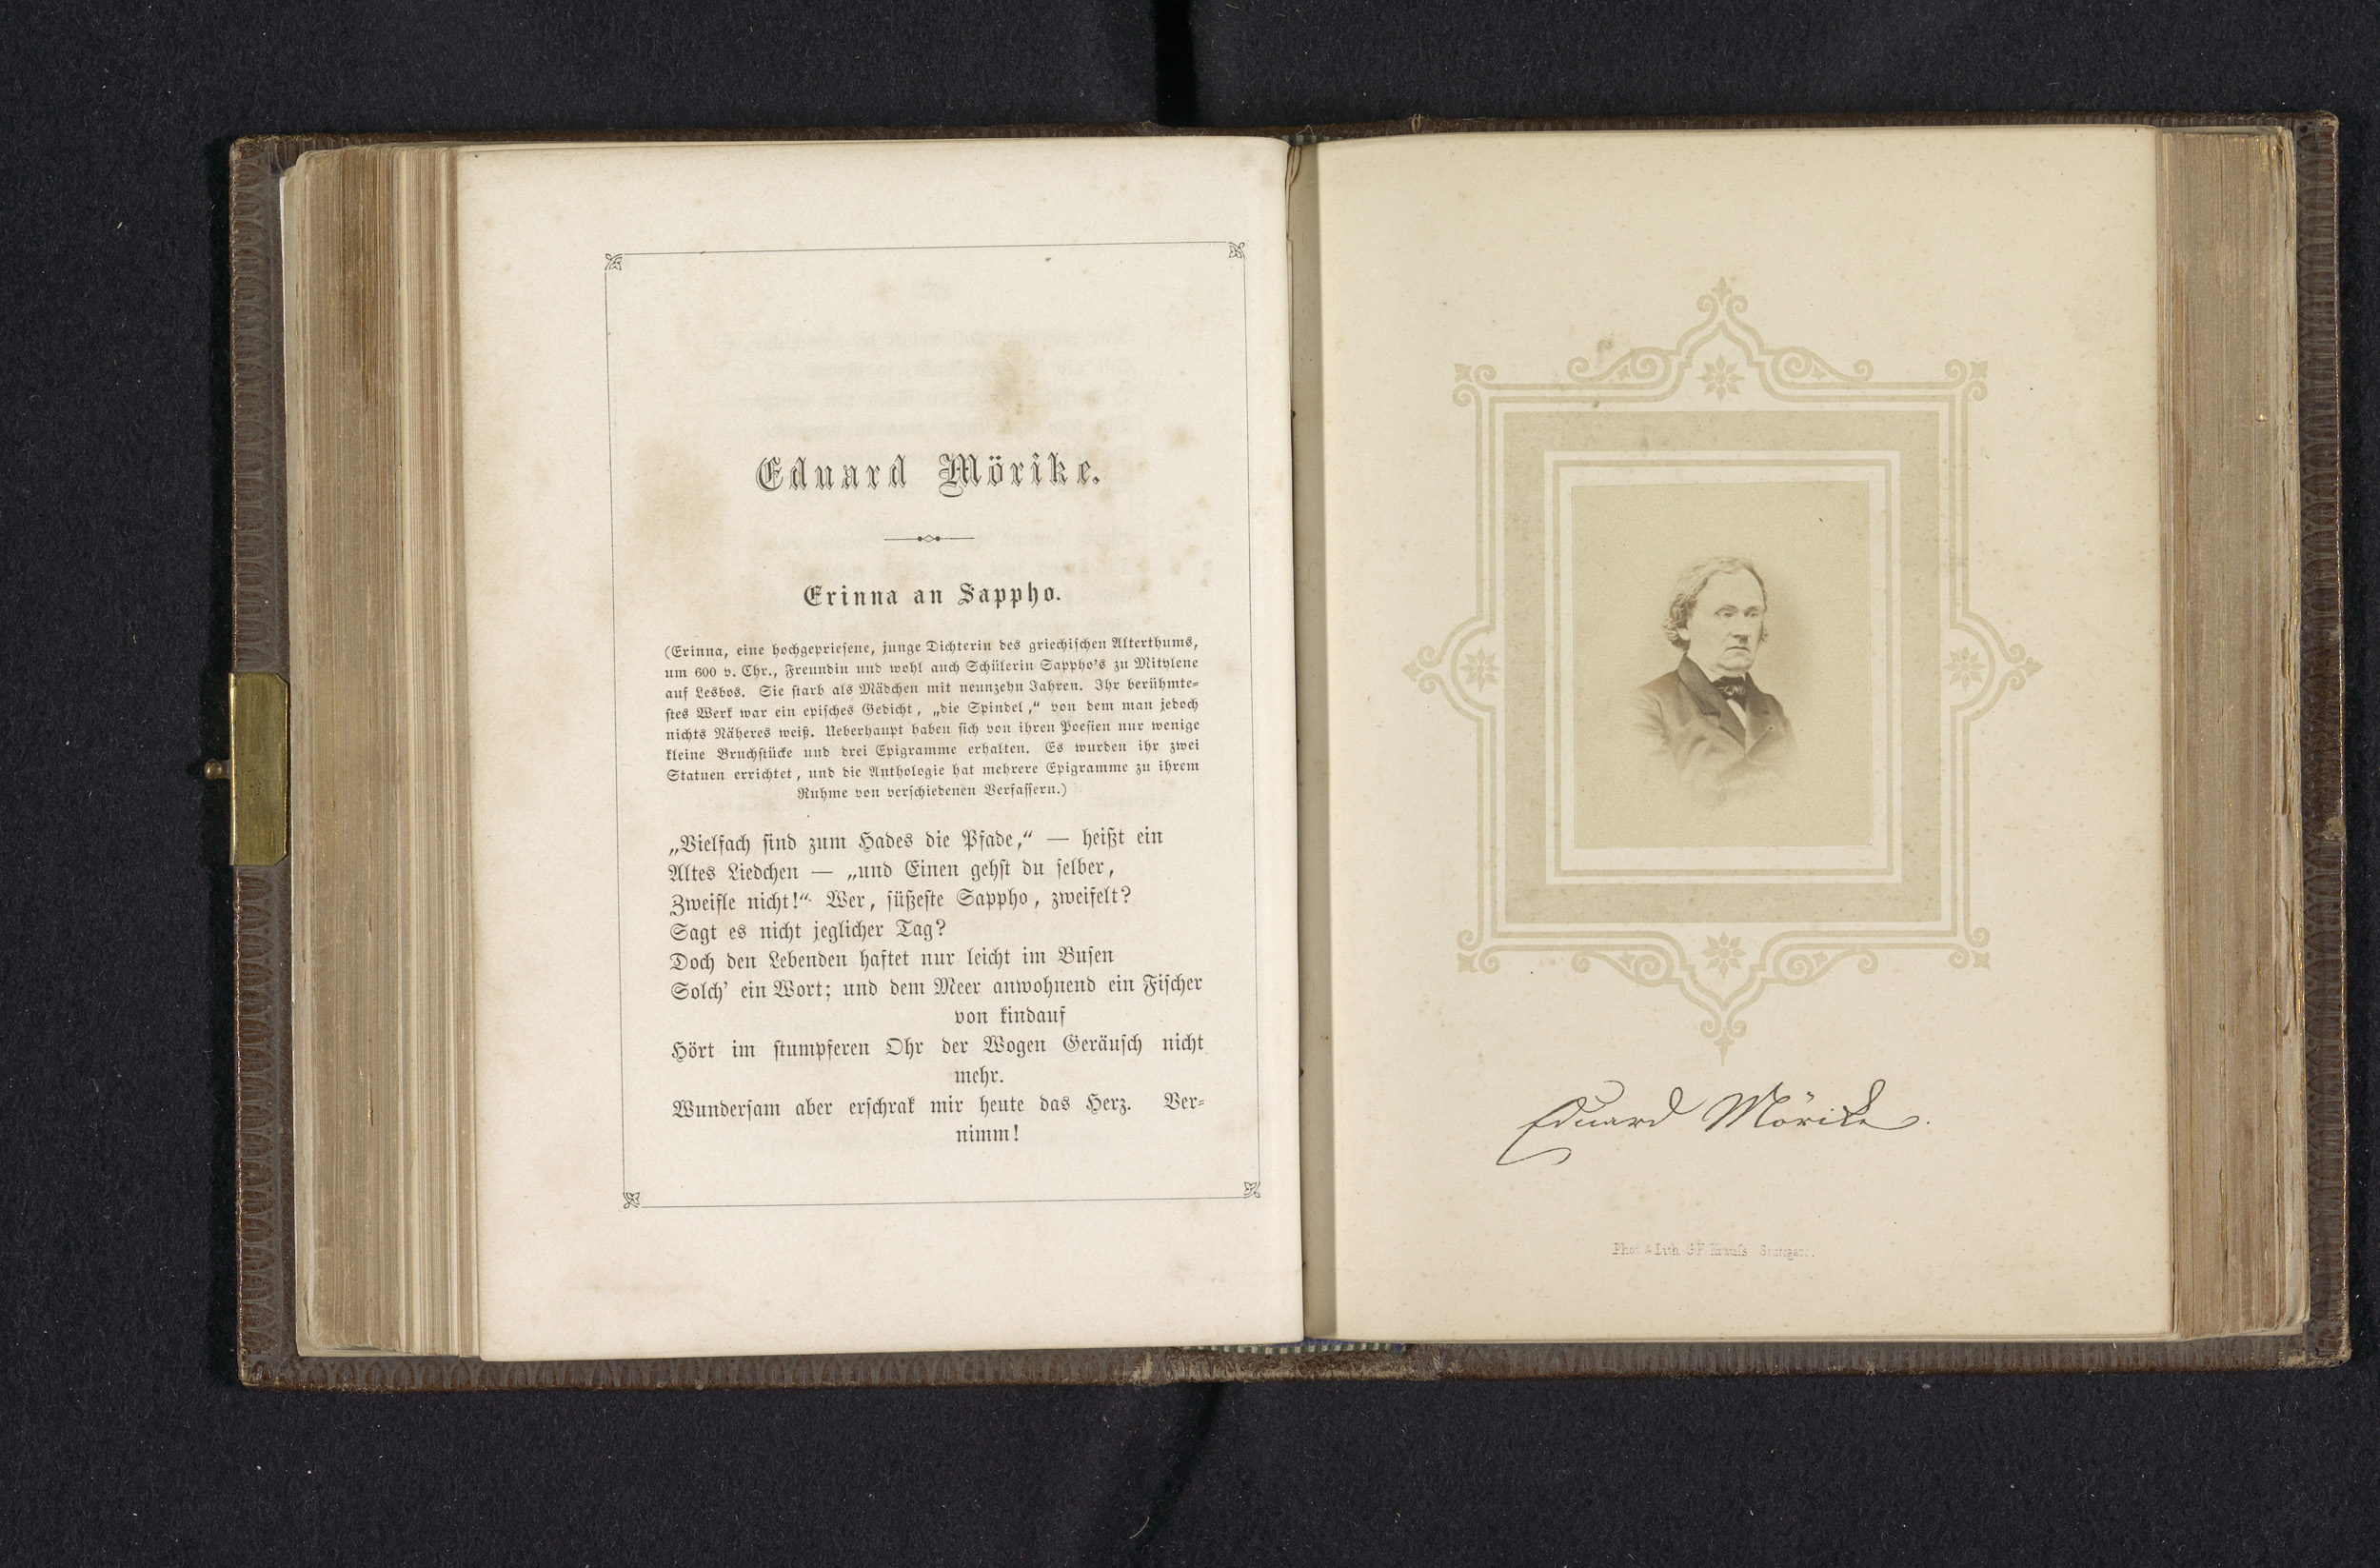 Eduard Mörike.
Erinna an Sappho.
(Erinna, eine hochgepriesene, junge Dichterin des griechischen Alterthums,
um 600 v. Chr., Freundin und wohl auch Schülerin Sappho's zu Mitylene
auf Lesbos. Sie starb als Mädchen mit neunzehn Jahren. Ihr berühmte-
stes Werk war ein episches Gedicht, „die Spindel,“ von dem man jedoch
nichts Näheres weiß. Ueberhaupt haben sich von ihren Poesien nur wenige
kleine Bruchstücke und drei Epigramme erhalten. Es wurden ihr zwei
Statuen errichtet, und die Anthologie hat mehrere Epigramme zu ihrem
Ruhme von verschiedenen Verfassern.)
„Vielfach sind zum Hades die Pfade,“ — heißt ein
Altes Liedchen — „und Einen gehst du selber,
Zweifle nicht!“ Wer, süßeste Sappho, zweifelt?
Sagt es nicht jeglicher Tag?
Doch den Lebenden haftet nur leicht im Busen
Solch' ein Wort; und dem Meer anwohnend ein Fischer
von kindauf
Hört im stumpferen Ohr der Wogen Geräusch nicht
mehr.
Wundersam aber erschrak mir heute das Herz. Ver-
nimm!
Eduard Mörike.
Phot & Lith G F. Krauſs Stuttgart.